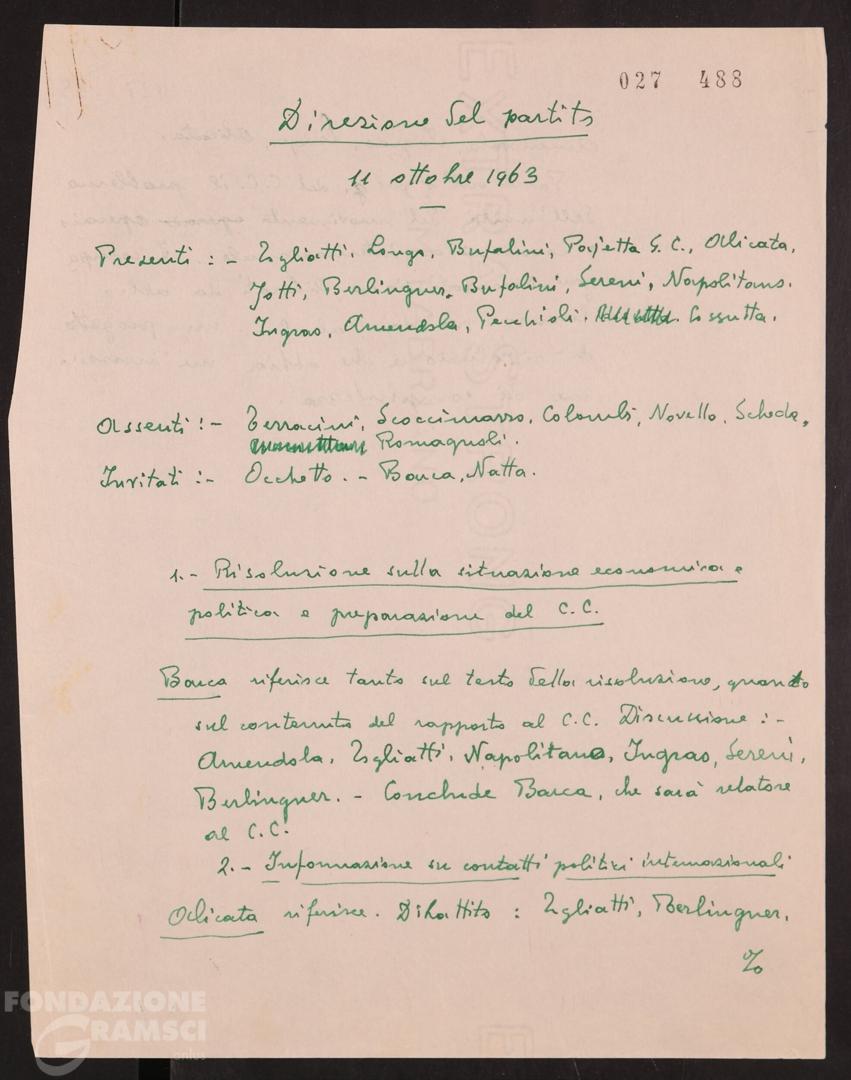 027 488
Direzione del partito
11 ottobre 1963
Presenti : - Togliatti, Longo, Bufalini, Pajetta G. C., Alicata,
Jotti, Berlinguer, Bufalini, Sereni, Napolitano,
Ingrao, Amendola, Pecchioli, Cossutta.
Assenti : - Terracini, Scoccimarro, Colombi, Novella, Scheda,
Romagnoli.
Invitati : - Occhetto. - Barca, Natta.
1. - Risoluzione sulla situazione economica e
politica e preparazione del C. C.
Barca riferisce tanto sul testo della risoluzione, quanto
sul contenuto del rapporto al C. C. Discussione : -
Amendola, Togliatti, Napolitano, Ingrao, Sereni,
Berlinguer. - Conclude Barca, che sarà relatore
al C. C.
2. - Informazione su contatti politici internazionali
Alicata riferisce. Dibattito : Togliatti, Berlinguer,
%
FONDAZIONE
GRAMSCI
onlus